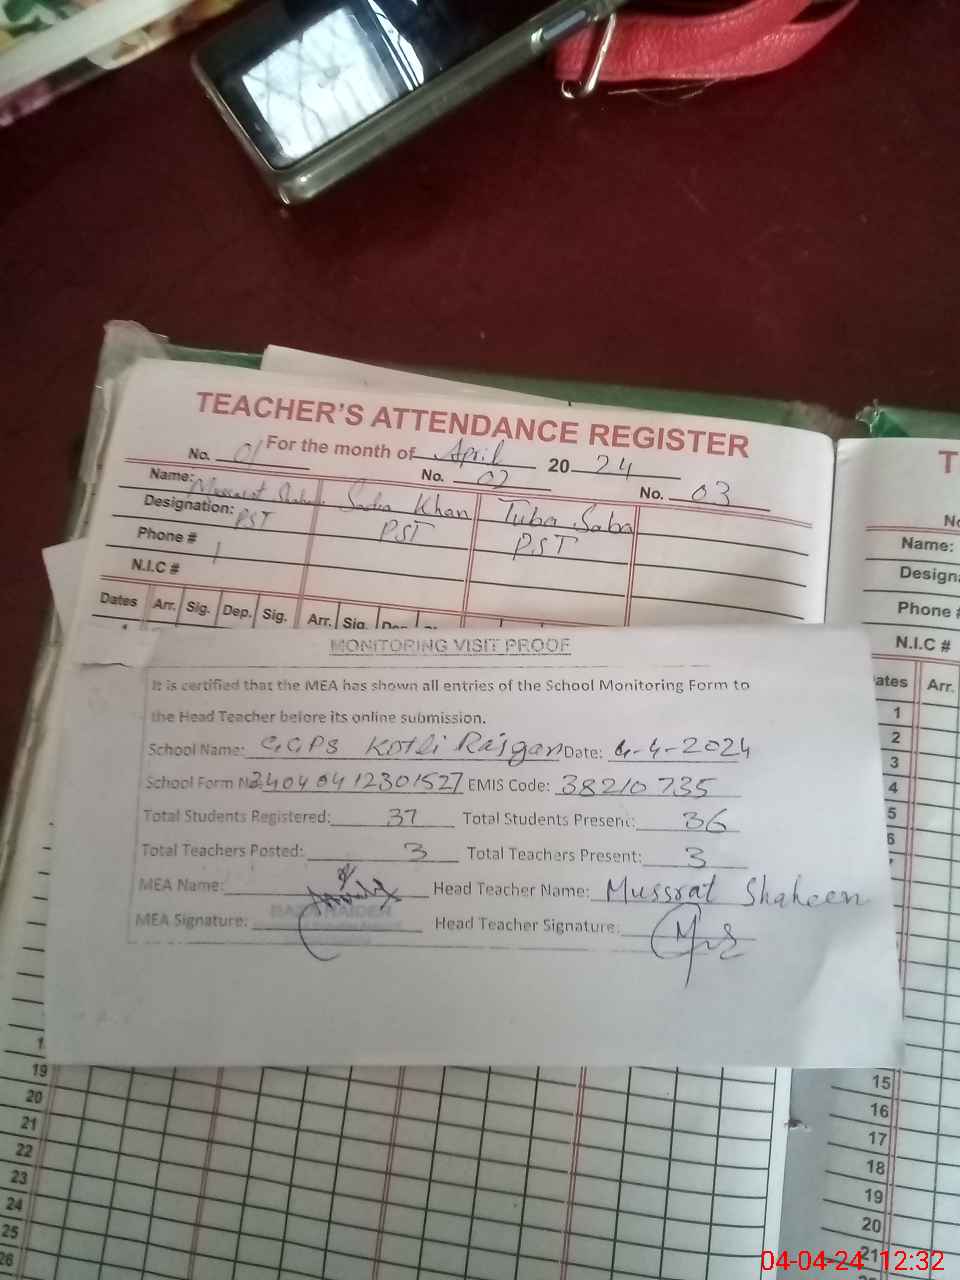 TEACHER'S ATTENDANCE REGISTER
For the month of April 2024
No. 01 No. 02 No. 03
Name: Mussarat Shaheen Sadia Khan Tuba Saba
Designation: PST PST PST
Phone #
N.I.C #
Dates Arr. Sig. Dep. Sig. Arr. Sig. Dep.
MONITORING VISIT PROOF
It is certified that the MEA has shown all entries of the School Monitoring Form to
the Head Teacher before its online submission.
School Name: G.G.P.S Kotli Raigan Date: 4-4-2024
School Form No: 34040412301527 EMIS Code: 38210735
Total Students Registered: 37 Total Students Present: 36
Total Teachers Posted: 3 Total Teachers Present: 3
MEA Name: Head Teacher Name: Mussrat Shaheen
MEA Signature: Head Teacher Signature:
19
20
21
22
23
24
25
26
T
No
Name:
Design
Phone #
N.I.C #
ates Arr.
1
2
3
4
5
6
15
16
17
18
19
20
21
04-04-24 12:32